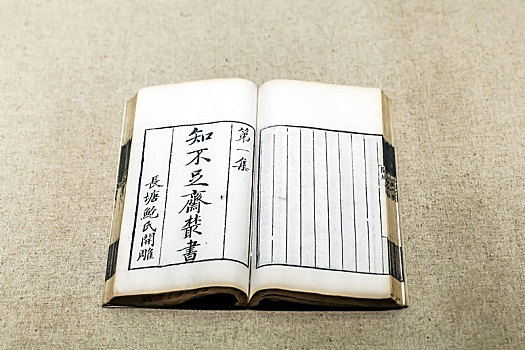 第一集
知不足齋叢書
長塘鲍氏開雕